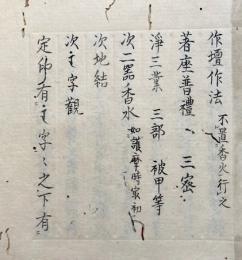 作壇作法 不置香火行之
著座普禮 〻 三密
淨三業 三部 被甲等
次二器香水 如護摩時家初
次地結
次字觀
定印有字〻之下有